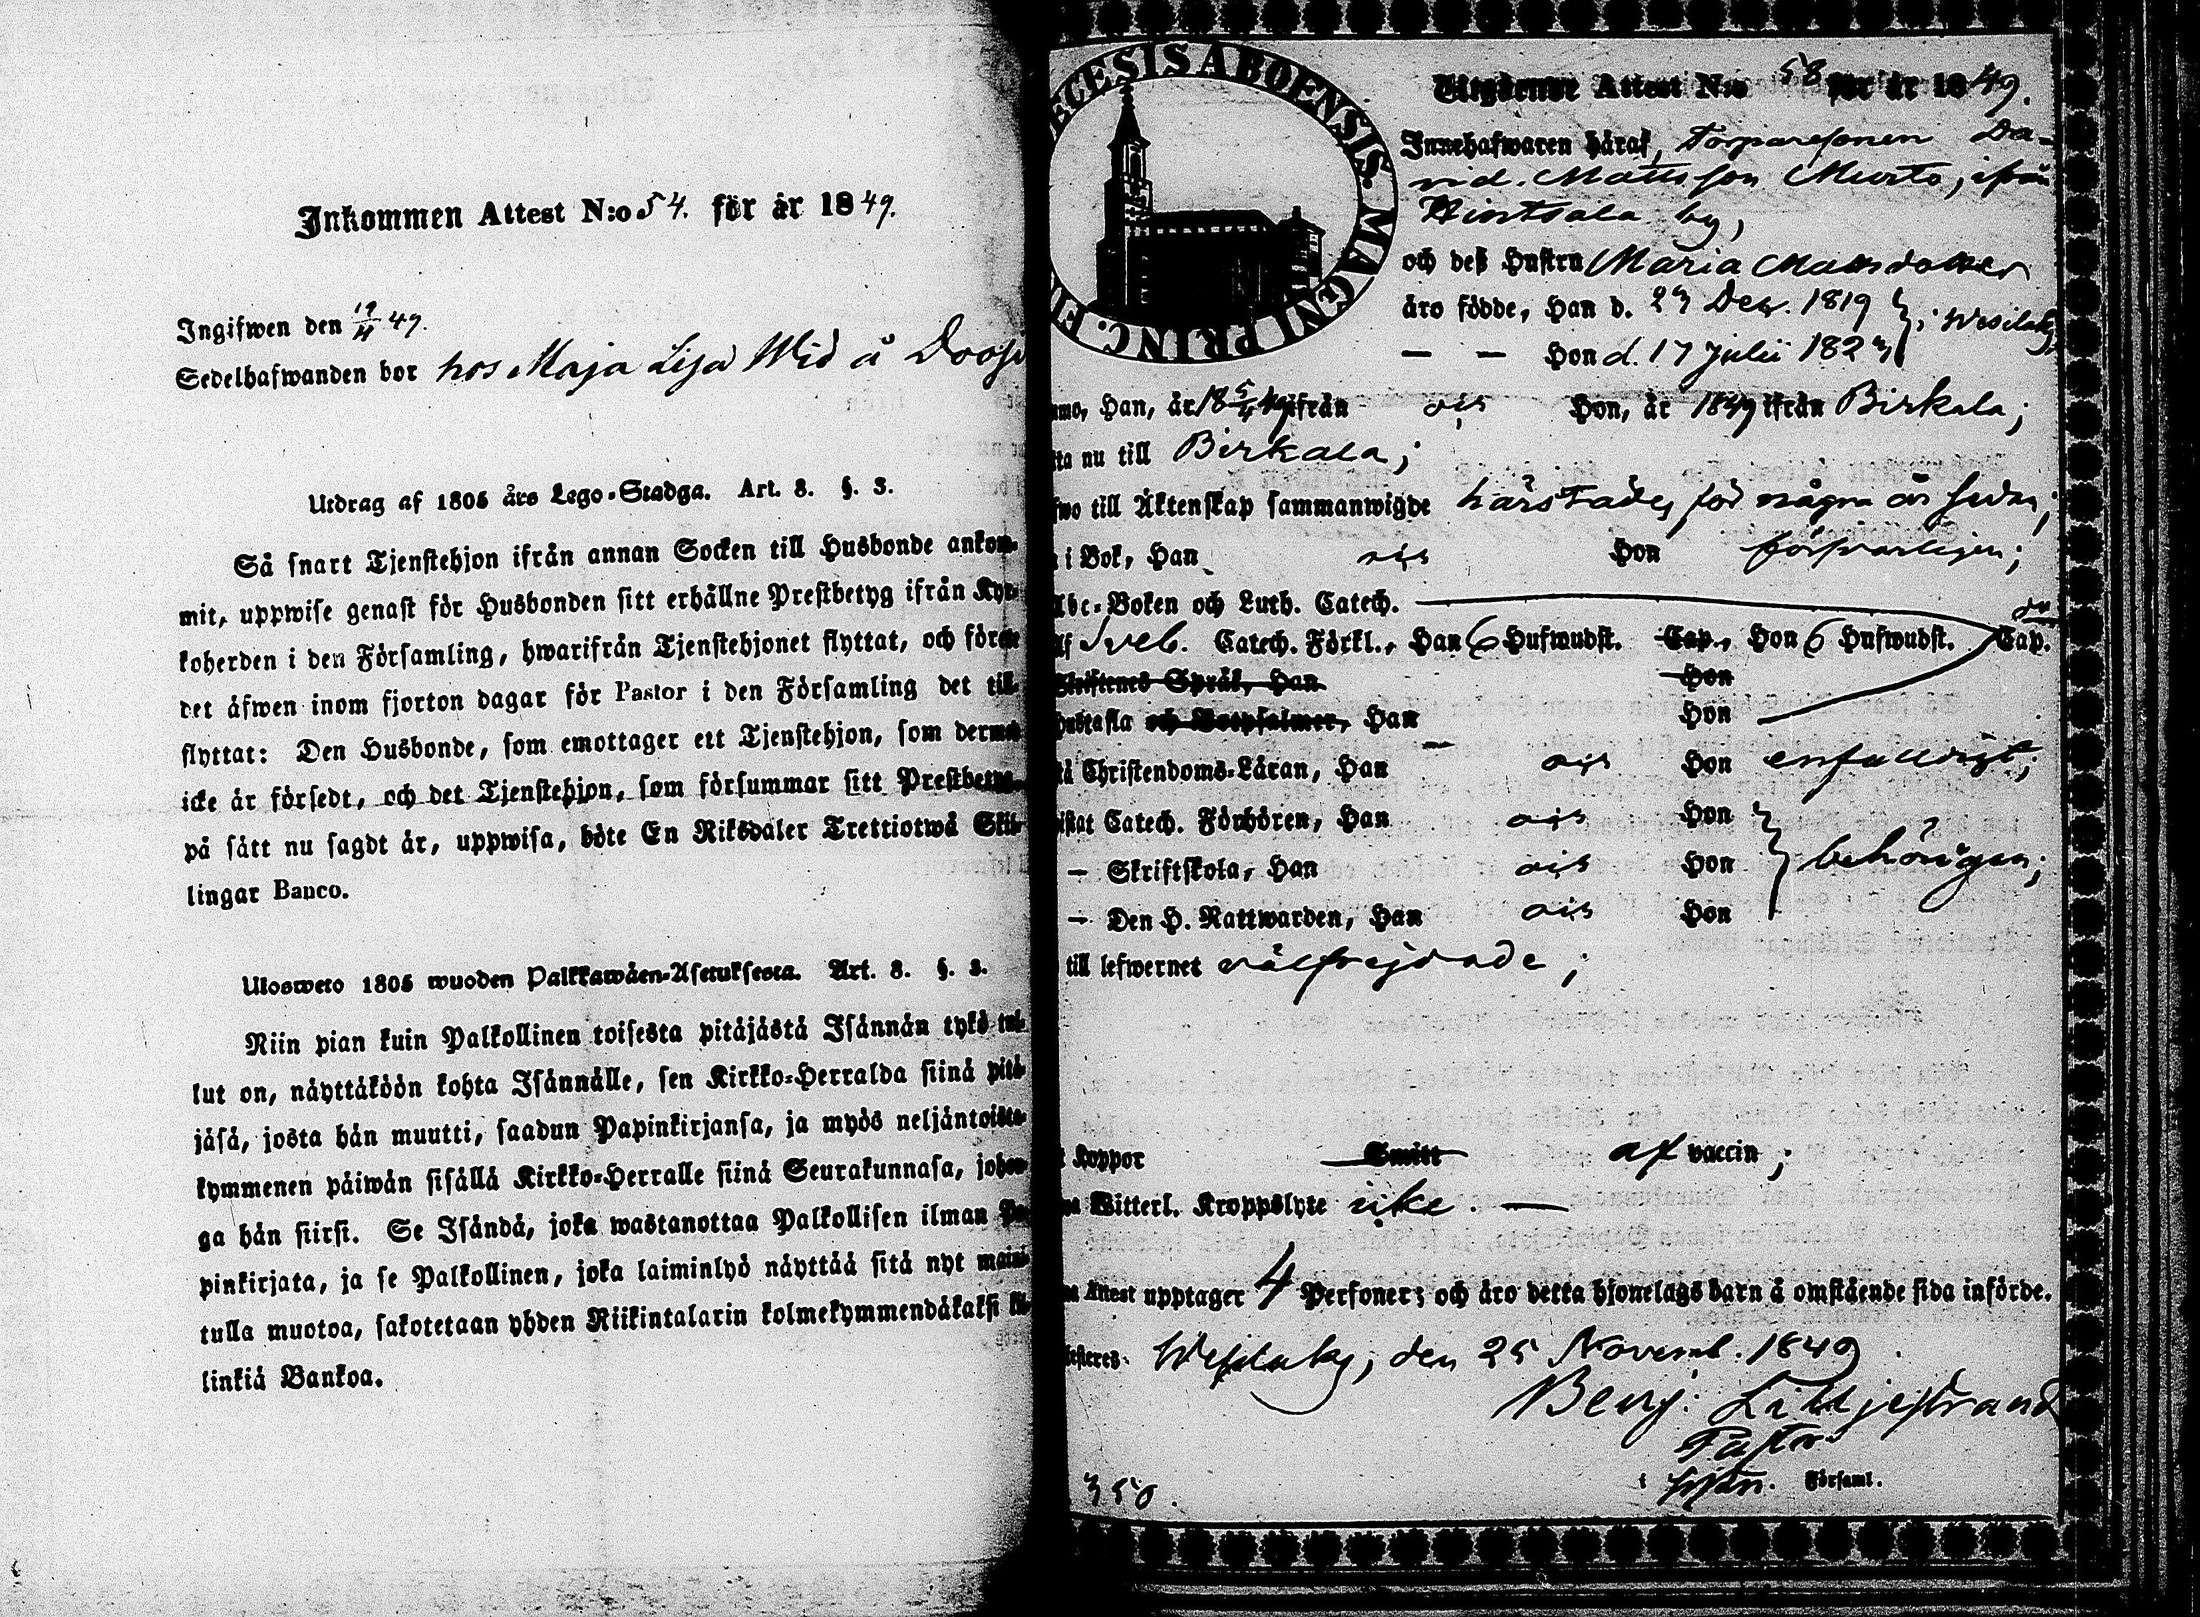 Inkommen Attest N:o 54. för år 1849.
Ingifwen den 49.
Sedelhafwanden bor hos Maja Lisa Wid å
Utdrag af 1805 års Lego-Stadga. Art. 8. §. 3.
Så snart Tjenstehjon ifrån annan Socken till Husbonde ankom-
mit, uppwise genast för Husbonden sitt erhållne Prestbetyg ifrån Kyr-
koherden i den Församling, hwarifrån Tjenstehjonet flyttat, och förete
det äfwen inom fjorton dagar för Pastor i den Församling det till-
flyttat: Den Husbonde, som emottager ett Tjenstehjon, som dermed
icke är försedt, och det Tjenstehjon, som försummar sitt Prestbetyg,
på sätt nu sagdt är, uppwisa, böte En Riksdaler Trettiotwå Skil-
lingar Banco.
Ulosweto 1805 wuoden Palkkawäen-Asetuksesta. Art. 8. §. 3.
Niin pian kuin Palkollinen toisesta pitäjästä Isännän tykö tul-
lut on, näyttäköön kohta Isännälle, sen Kirkko-Herralda siinä pitä-
jäsä, josta hän muutti, saadun Papinkirjansa, ja myös neljäntoista-
kymmenen päiwän sisällä Kirkko-Herralle siinä Seurakunnasa, johon-
ga hän siirsi. Se Isändä, joka wastanottaa Palkollisen ilman Pa-
pinkirjata, ja se Palkollinen, joka laiminlyö näyttää sitä nyt maini-
tulla muotoa, sakotetaan yhden Riikintalarin kolmekymmendäkaksi kil-
linkiä Bankoa.
ECESIS ABOENSIS. MAGNI PRINC. FI
Utgående Attest N:o 58 för år 1849.
Innehafwaren häraf, Torparesonen Da-
vid Mattsson Murto, ifrån
Hintsala by,
och deß Hustru Maria Mattsdotter
äro födde, Han d. 23 Dec. 1819 i Wesilaks,
— — Hon d. 17 Julii 1823
mo, Han, år 18 49 ifrån ois Hon, år 1849 ifrån Birkala;
ta nu till Birkala;
wo till Äktenskap sammanwigde härstädes för några år sedan;
i Bok, Han ois Hon försvarligen;
Abc-Boken och Luth. Catech.
af Sveb. Catech. Förkl., Han 6 Hufwudst. Cap., Hon 6 Hufwudst. Cap.
Skriftenes Språk, Han Hon
Hustafla och Botpsalmer, Han Hon
å Christendoms-Läran, Han ois Hon enfaldigt;
istat Catech. Förhören, Han ois Hon
— Skriftskola, Han ois Hon behörigen;
— Den H. Nattwarden, Han ois Hon
till lefwernet välfrejdade;
Koppor Smitt af vaccin;
Witterl. Kroppslyte icke. —
Attest upptager 4 Personer; och äro detta hjonelags barn å omstående sida införde.
Wesilaks, den 25 Novemb. 1849.
Benj. Lilljestrand
Pastor
i Församl.
350.